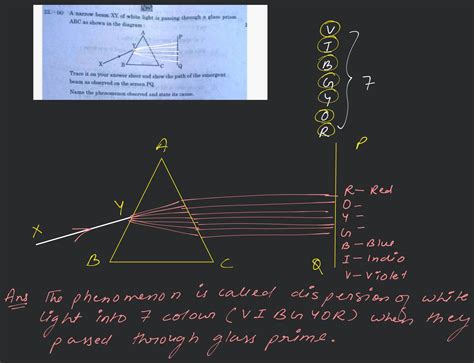 22. 90 A narrow beam XY, of white light is passing through a glass prism
ABC as shown in the diagram :
A
P
Y
X
B
C
Q
Trace it on your answer sheet and show the path of the emergent
beam as observed on the screen PQ.
Name the phenomenon observed and state its cause.
V
I
B
G
Y
O
R
7
A
P
Y
X
B
C
Q
R - Red
O -
Y -
G -
B - Blue
I - Indio
V - Violet
Ans The phenomenon is called dispersion of white
light into 7 colour (VIBGYOR) when they
passed through glass prime.